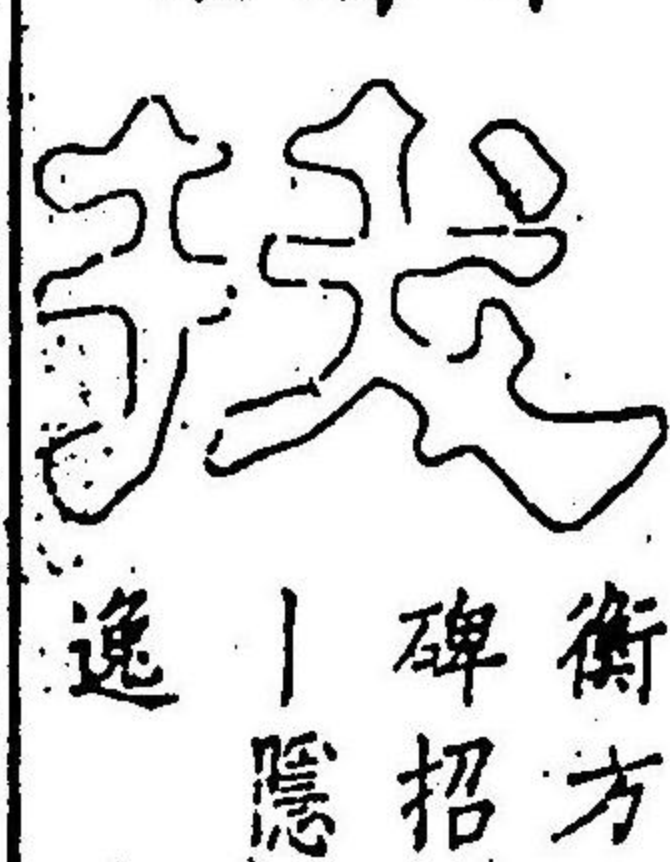 拔
衡方
碑招
｜隱
逸